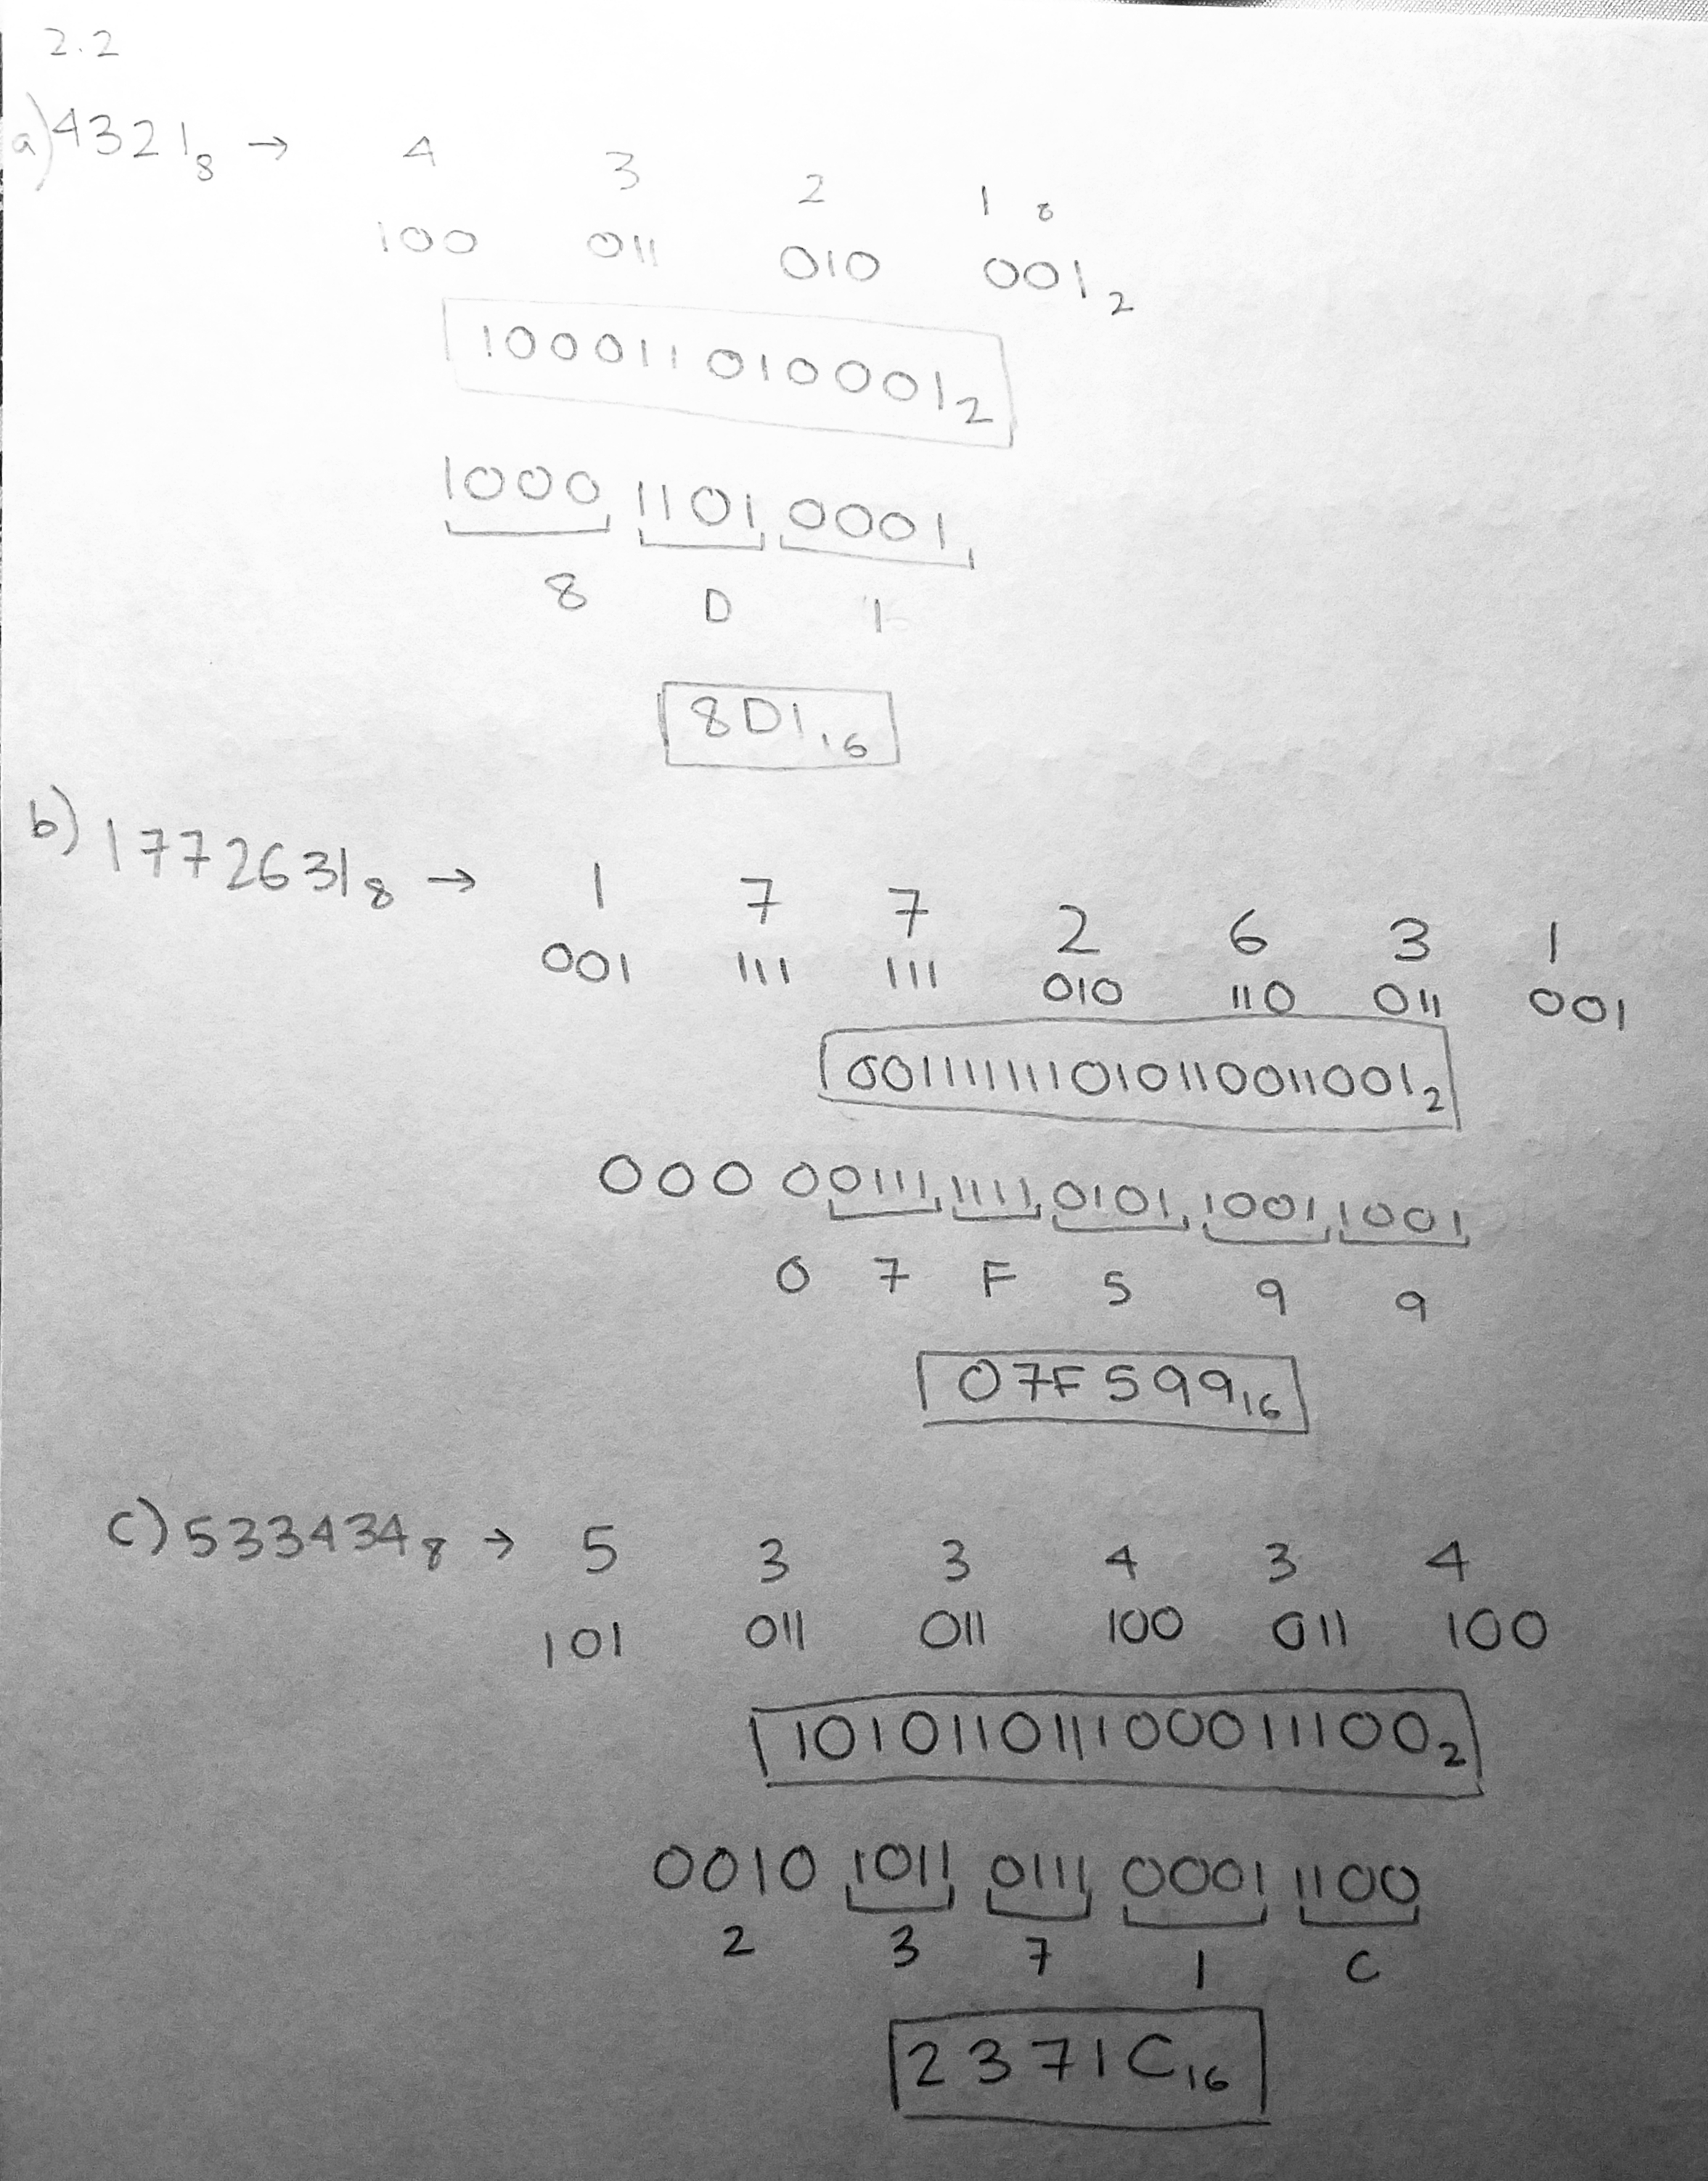 2.2
a) 4321₈ → 4 3 2 1 ₈
100 011 010 001₂
100011010001₂
1000 1101 0001
8 D 1
8D1₁₆
b) 1772631₈ → 1 7 7 2 6 3 1
001 111 111 010 110 011 001
001111111010110011001₂
000 00111 1111 0101 1001 1001
0 7 F 5 9 9
07F599₁₆
c) 533434₈ → 5 3 3 4 3 4
101 011 011 100 011 100
101011011100011100₂
0010 1011 0111 0001 1100
2 3 7 1 C
2371C₁₆